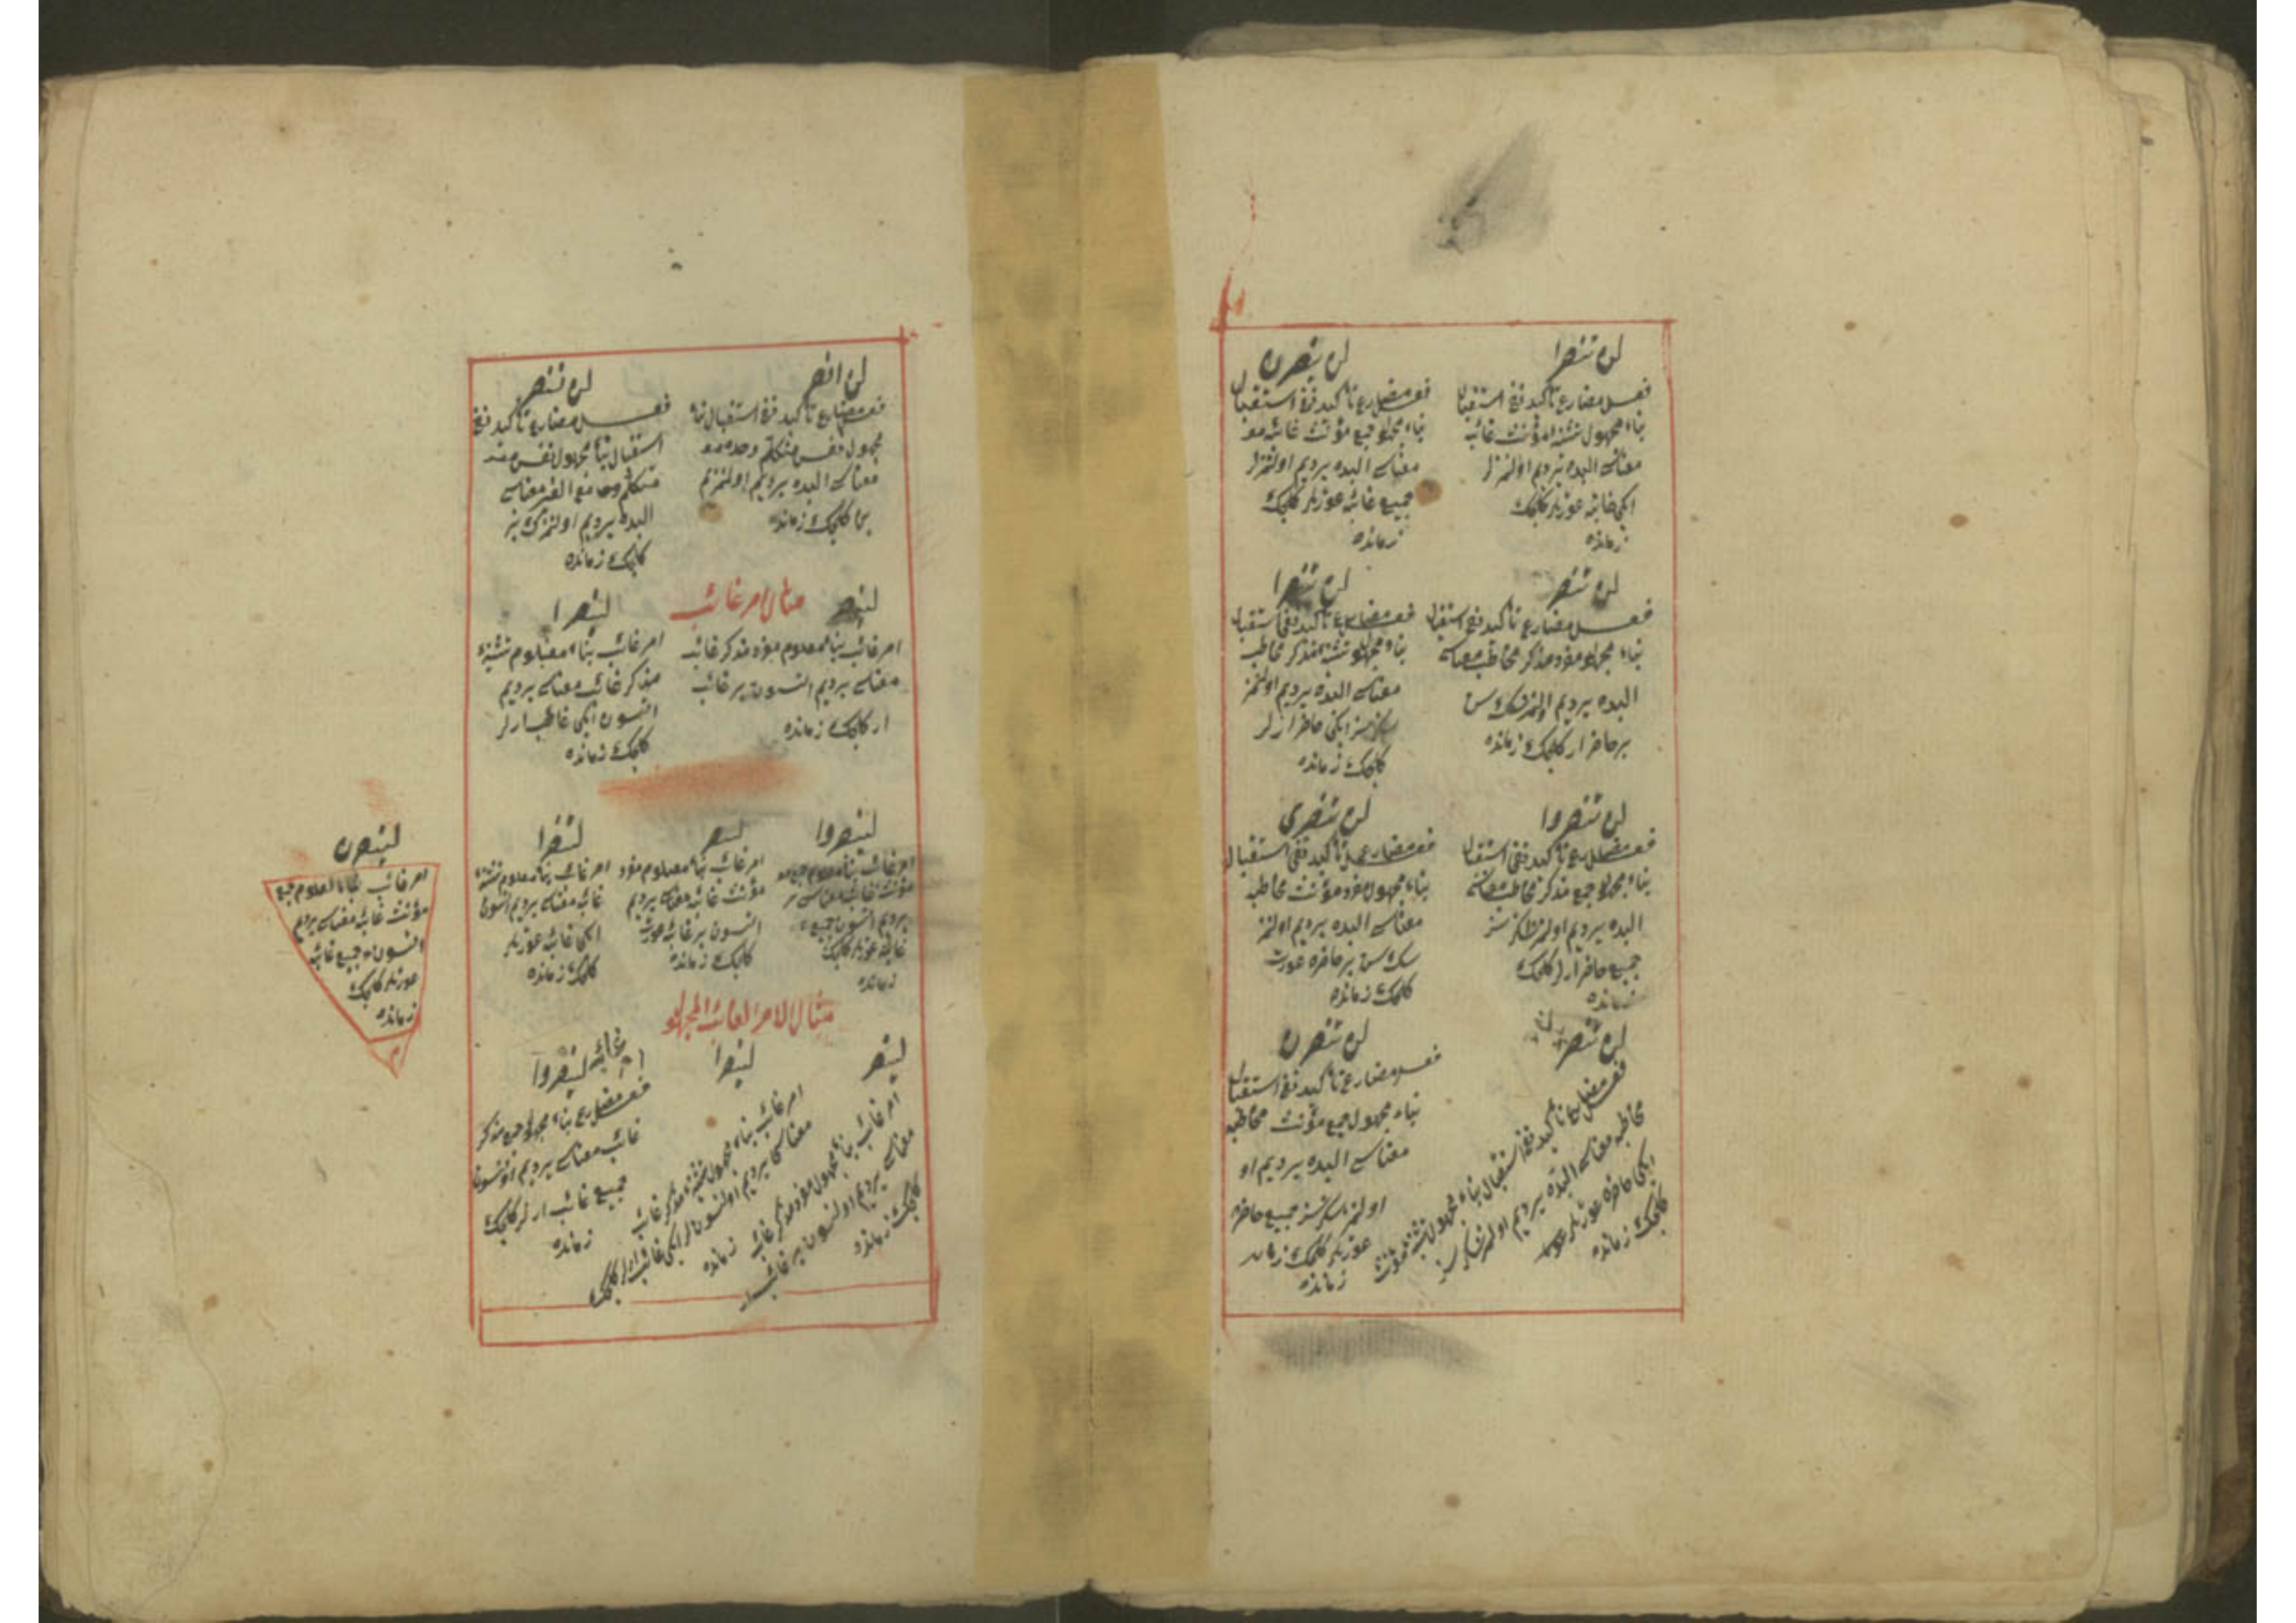 لن تنصرا
فعل مضارع تأكيد نفى استقبال
بناء مجهول تثنيه مؤنث غائبه
معناسى البده يرديم اولنمزلر
ايكى غائبه عورتلر كلجك
زمانده
لن ينصرن
فعل مضارع تأكيد نفى استقبال
بناء مجهول جمع مؤنث غائبه
معناسى البده يرديم اولنمزلر
جميع غائبه عورتلر كلجك
زمانده
لن تنصر
فعل مضارع تأكيد نفى استقبال
بناء مجهول مفرد مذكر مخاطب معناسى
البده يرديم سن
بر حاضر ار كلجك زمانده
لن تنصرا
فعل مضارع تأكيد نفى استقبال
بناء مجهول تثنيه مذكر مخاطب
معناسى البده يرديم اولنمز
سكز سز ايكى حاضر ارلر
كلجك زمانده
لن تنصروا
فعل مضارع تأكيد نفى استقبال
بناء مجهول جمع مذكر مخاطب معناسى
البده يرديم
جميع حاضر ارلر كلجك
زمانده
لن تنصرى
فعل مضارع تأكيد نفى استقبال
بناء مجهول مفرد مؤنث مخاطبه
معناسى البده يرديم اولنمز
سك سن بر حاضره عورت
كلجك زمانده
لن تنصرا
فعل مضارع تأكيد نفى استقبال بناء مجهول تثنيه مؤنث
مخاطبه معناسى البده يرديم سز
ايكى حاضره عورتلر
كلجك زمانده
لن تنصرن
فعل مضارع تأكيد نفى استقبال
بناء مجهول جمع مؤنث مخاطبه
معناسى البده يرديم او
اولنمز سكز سز جميع حاضره
عورتلر كلجك
زمانده
لن انصر
فعل مضارع تأكيد نفى استقبال بناء
مجهول نفس متكلم وحده
معناسى البده يرديم اولنمزم
بن كلجك زمانده
لن ننصر
فعل مضارع تأكيد نفى
استقبال بناء مجهول نفس
متكلم مع الغير معناسى
البده يرديم اولنمزك بز
كلجك زمانده
مثال امر غائب
لينصر
امر غائب بناء معلوم مفرد مذكر غائب
معناسى يرديم اتسون بر غائب
ار كلجك زمانده
لينصرا
امر غائب بناء معلوم تثنيه
مذكر غائب معناسى يرديم
اتسون ايكى ارلر
كلجك زمانده
لينصروا
امر غائب بناء معلوم جمع
مؤنث غائبه معناسى
يرديم اتسون جميع
غائبه عورتلر كلجك
زمانده
لتنصر
امر غائب بناء معلوم مفرد
مؤنث غائبه معناسى يرديم
اتسون بر غائبه عورت
كلجك زمانده
لتنصرا
امر غائب بناء معلوم تثنيه
غائبه معناسى يرديم اتسون
ايكى غائبه عورتلر
كلجك زمانده
لينصرن
امر غائب بناء معلوم جمع
مؤنث غائبه معناسى يرديم
اتسون جميع غائبه
عورتلر كلجك
زمانده
مثال الامر الغائب المجهول
لينصر
امر غائب بناء مجهول مفرد مذكر غائب
معناسى يرديم اولنسون بر غائب ار
كلجك زمانده
لينصرا
امر غائب بناء مجهول تثنيه مذكر غائب
معناسى يرديم اولنسونلر ايكى غائب ارلر كلجك
زمانده
لينصروا
فعل مضارع بناء مجهول جمع مذكر
غائب معناسى يرديم
جميع غائب ارلر كلجك
زمانده